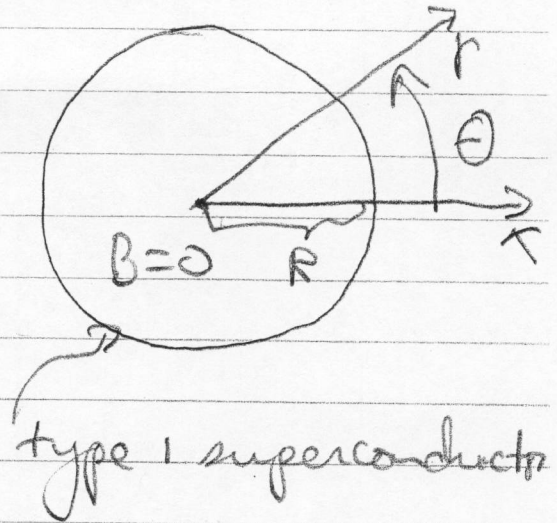 r
θ
x
B=0
R
type 1 superconductor